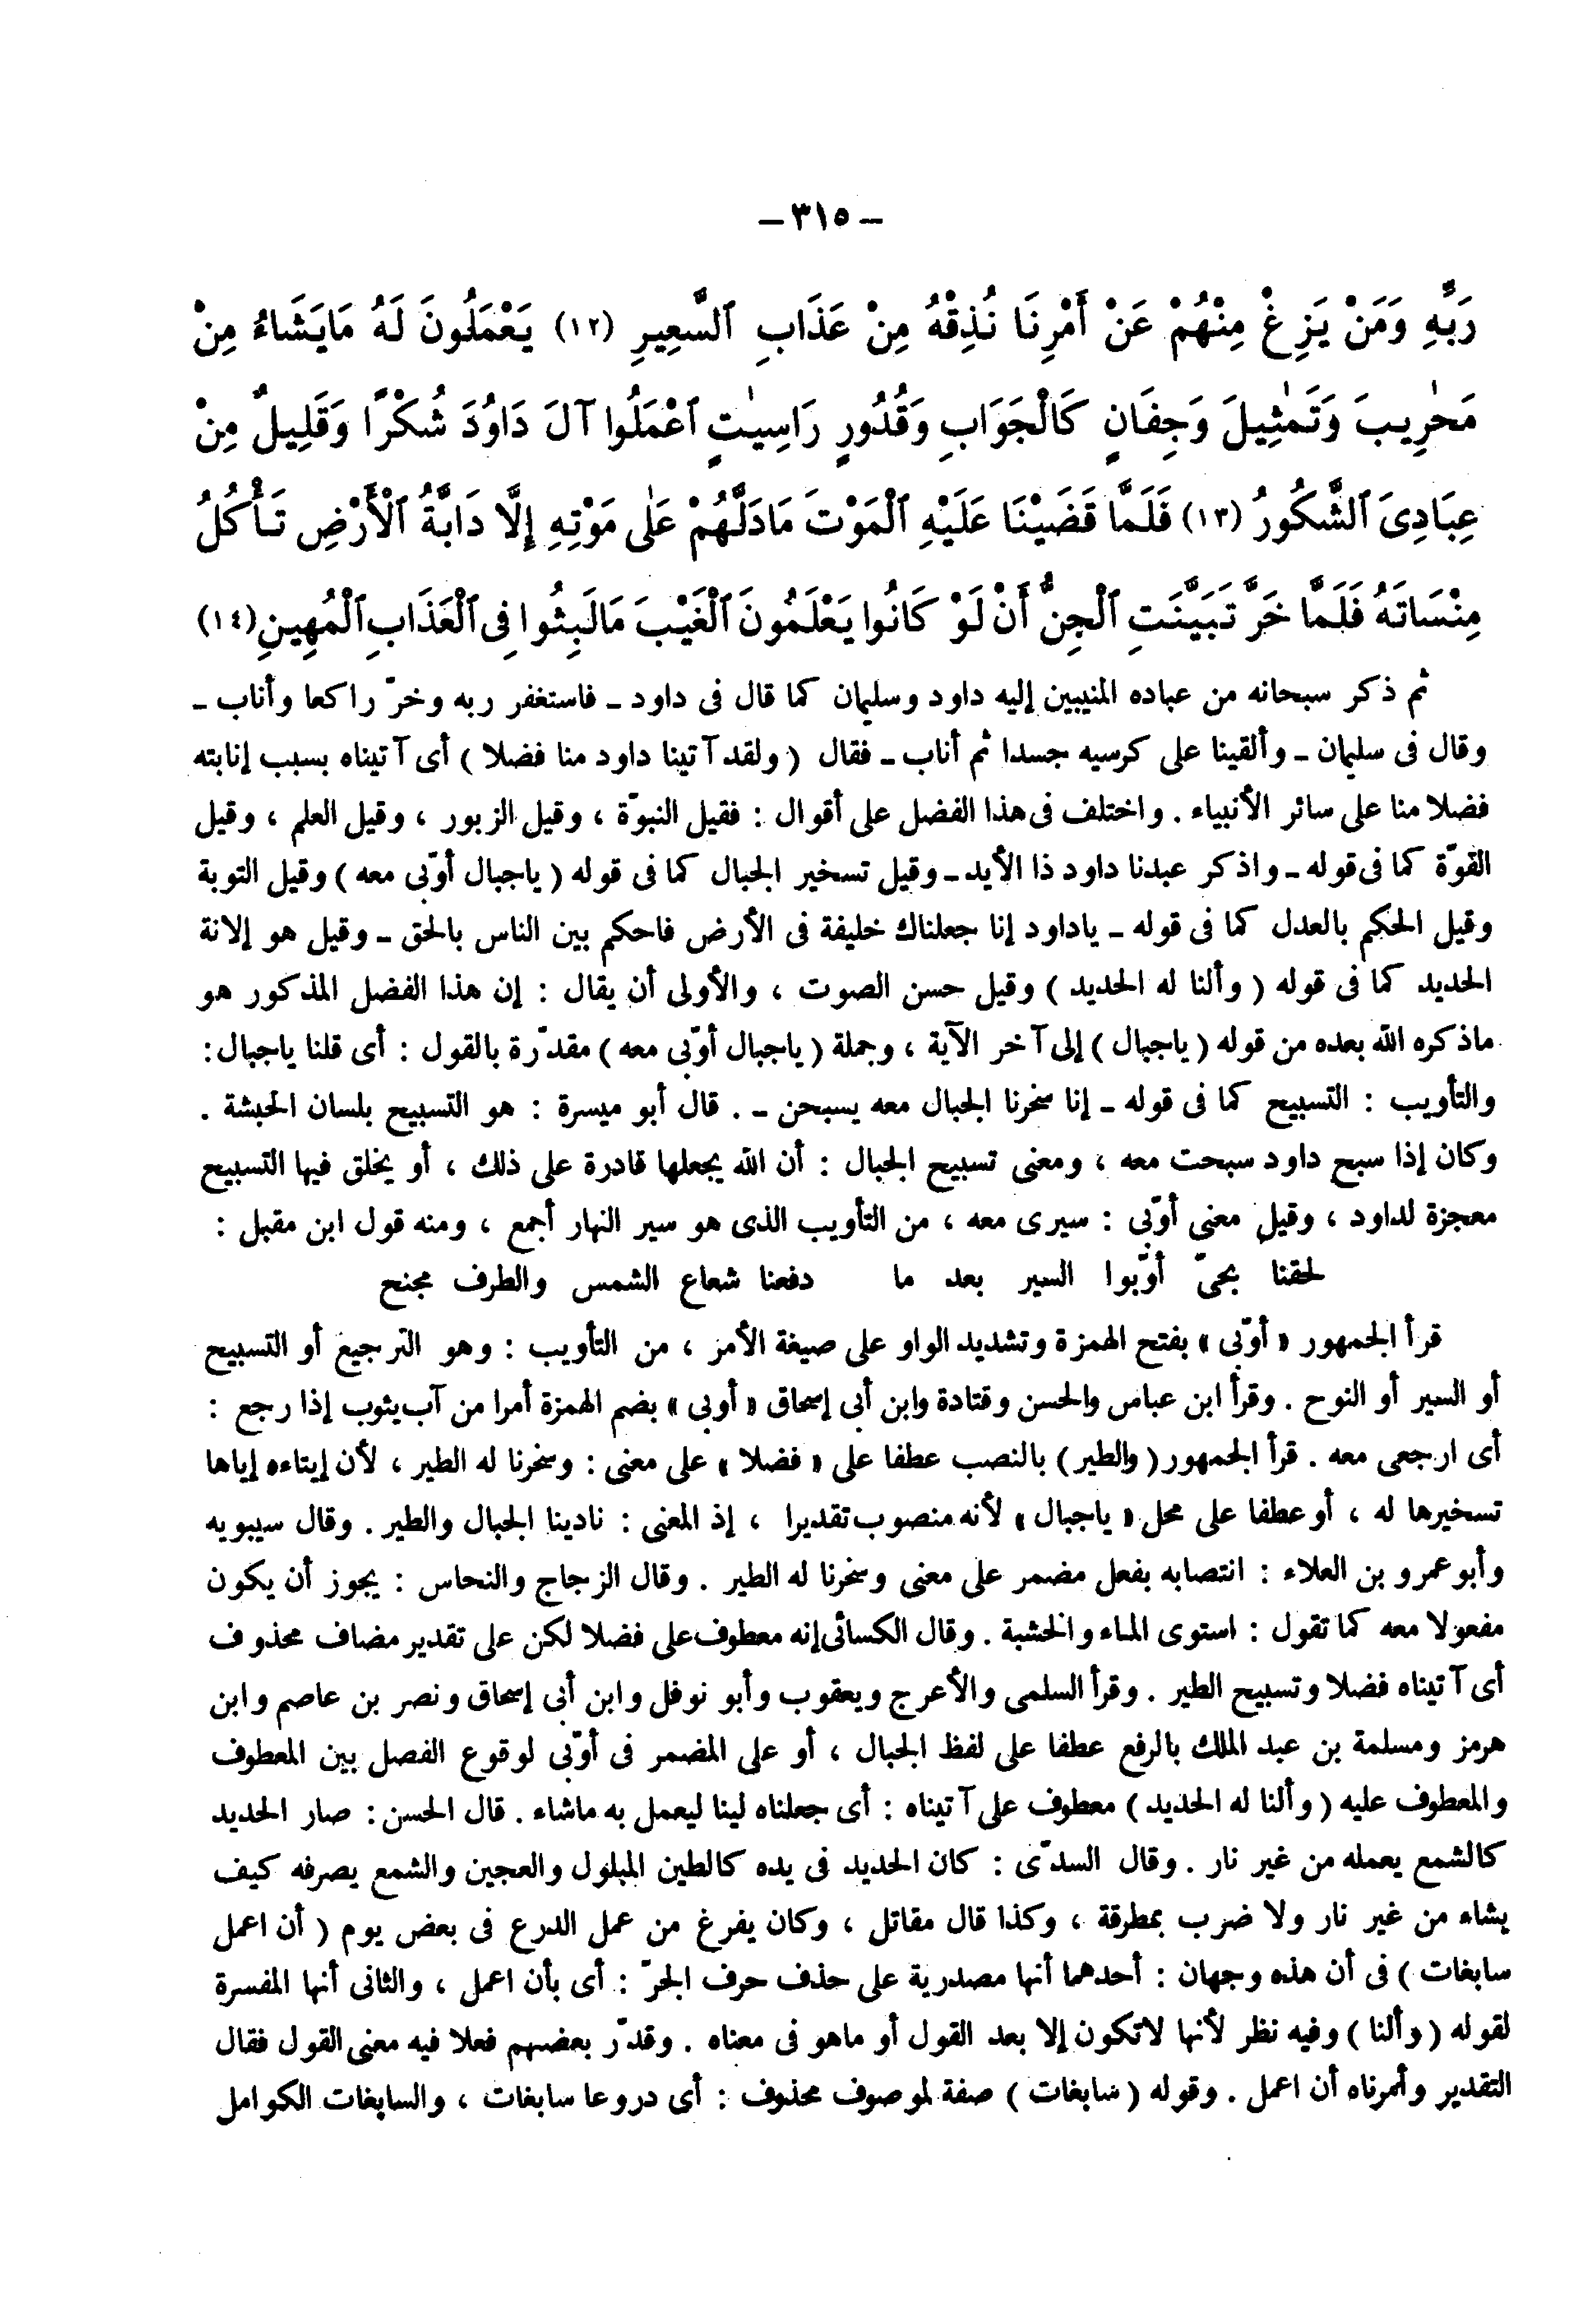 – ٣١٥ –
رَبِّهِ وَمَنْ يَزِغْ مِنْهُمْ عَنْ أَمْرِنَا نُذِقْهُ مِنْ عَذَابِ ٱلسَّعِيرِ (١٢) يَعْمَلُونَ لَهُ مَايَشَاءُ مِنْ
مَحٰرِيبَ وَتَمٰثِيلَ وَجِفَانٍ كَالْجَوَابِ وَقُدُورٍ رَاسِيٰتٍ ٱعْمَلُوا آلَ دَاوُدَ شُكْرًا وَقَلِيلٌ مِنْ
عِبَادِىَ ٱلشَّكُورُ (١٣) فَلَمَّا قَضَيْنَا عَلَيْهِ ٱلْمَوْتَ مَادَلَّهُمْ عَلٰى مَوْتِهِ إِلَّا دَابَّةُ ٱلْأَرْضِ تَأْكُلُ
مِنْسَاتَهُ فَلَمَّا خَرَّ تَبَيَّنَتِ ٱلْجِنُّ أَنْ لَوْ كَانُوا يَعْلَمُونَ ٱلْغَيْبَ مَالَبِثُوا فِى ٱلْعَذَابِ ٱلْمُهِينِ (١٤)
ثم ذكر سبحانه من عباده المنيبين إليه داود وسليمان كما قال فى داود ـ فاستغفر ربه وخرّ راكعا وأناب ـ
وقال فى سليمان ـ وألقينا على كرسيه جسدا ثم أناب ـ فقال ( ولقد آتينا داود منا فضلا ) أى آتيناه بسبب إنابته
فضلا منا على سائر الأنبياء . واختلف فى هذا الفضل على أقوال : فقيل النبوّة ، وقيل الزبور ، وقيل العلم ، وقيل
القوّة كما فى قوله ـ واذكر عبدنا داود ذا الأيد ـ وقيل تسخير الجبال كما فى قوله ( ياجبال أوّبى معه ) وقيل التوبة
وقيل الحكم بالعدل كما فى قوله ـ ياداود إنا جعلناك خليفة فى الأرض فاحكم بين الناس بالحق ـ وقيل هو إلانة
الحديد كما فى قوله ( وألنا له الحديد ) وقيل حسن الصوت ، والأولى أن يقال : إن هذا الفضل المذكور هو
ماذكره الله بعده من قوله ( ياجبال ) إلى آخر الآية ، وجملة ( ياجبال أوّبى معه ) مقدّرة بالقول : أى قلنا ياجبال :
والتأويب : التسبيح كما فى قوله ـ إنا سخرنا الجبال معه يسبحن ـ . قال أبو ميسرة : هو التسبيح بلسان الحبشة .
وكان إذا سبح داود سبحت معه ، ومعنى تسبيح الجبال : أن الله يجعلها قادرة على ذلك ، أو يخلق فيها التسبيح
معجزة لداود ، وقيل معنى أوّبى : سيرى معه ، من التأويب الذى هو سير النهار أجمع ، ومنه قول ابن مقبل :
لحقنا بحىّ أوّبوا السير بعد ما دفعنا شعاع الشمس والطرف مجنح
قرأ الجمهور « أوّبى » بفتح الهمزة وتشديد الواو على صيغة الأمر ، من التأويب : وهو الترجيع أو التسبيح
أو السير أو النوح . وقرأ ابن عباس والحسن وقتادة وابن أبى إسحاق « أوبى » بضم الهمزة أمرا من آب يئوب إذا رجع :
أى ارجعى معه . قرأ الجمهور ( والطير ) بالنصب عطفا على « فضلا » على معنى : وسخرنا له الطير ، لأن إيتاءه إياها
تسخيرها له ، أو عطفا على محل « ياجبال » لأنه منصوب تقديرا ، إذ المعنى : نادينا الجبال والطير . وقال سيبويه
وأبو عمرو بن العلاء : انتصابه بفعل مضمر على معنى وسخرنا له الطير . وقال الزجاج والنحاس : يجوز أن يكون
مفعولا معه كما تقول : استوى الماء والخشبة . وقال الكسائى إنه معطوف على فضلا لكن على تقدير مضاف محذوف
أى آتيناه فضلا وتسبيح الطير . وقرأ السلمى والأعرج ويعقوب وأبو نوفل وابن أبى إسحاق ونصر بن عاصم وابن
هرمز ومسلمة بن عبد الملك بالرفع عطفا على لفظ الجبال ، أو على المضمر فى أوّبى لوقوع الفصل بين المعطوف
والمعطوف عليه ( وألنا له الحديد ) معطوف على آتيناه : أى جعلناه لينا ليعمل به ماشاء . قال الحسن : صار الحديد
كالشمع يعمله من غير نار . وقال السدّى : كان الحديد فى يده كالطين المبلول والعجين والشمع يصرفه كيف
يشاء من غير نار ولا ضرب بمطرقة ، وكذا قال مقاتل ، وكان يفرغ من عمل الدرع فى بعض يوم ( أن اعمل
سابغات ) فى أن هذه وجهان : أحدهما أنها مصدرية على حذف حرف الجرّ : أى بأن اعمل ، والثانى أنها المفسرة
لقوله ( وألنا ) وفيه نظر لأنها لاتكون إلا بعد القول أو ماهو فى معناه . وقدّر بعضهم فعلا فيه معنى القول فقال
التقدير وأمرناه أن اعمل . وقوله ( سابغات ) صفة لموصوف محذوف : أى دروعا سابغات ، والسابغات الكوامل